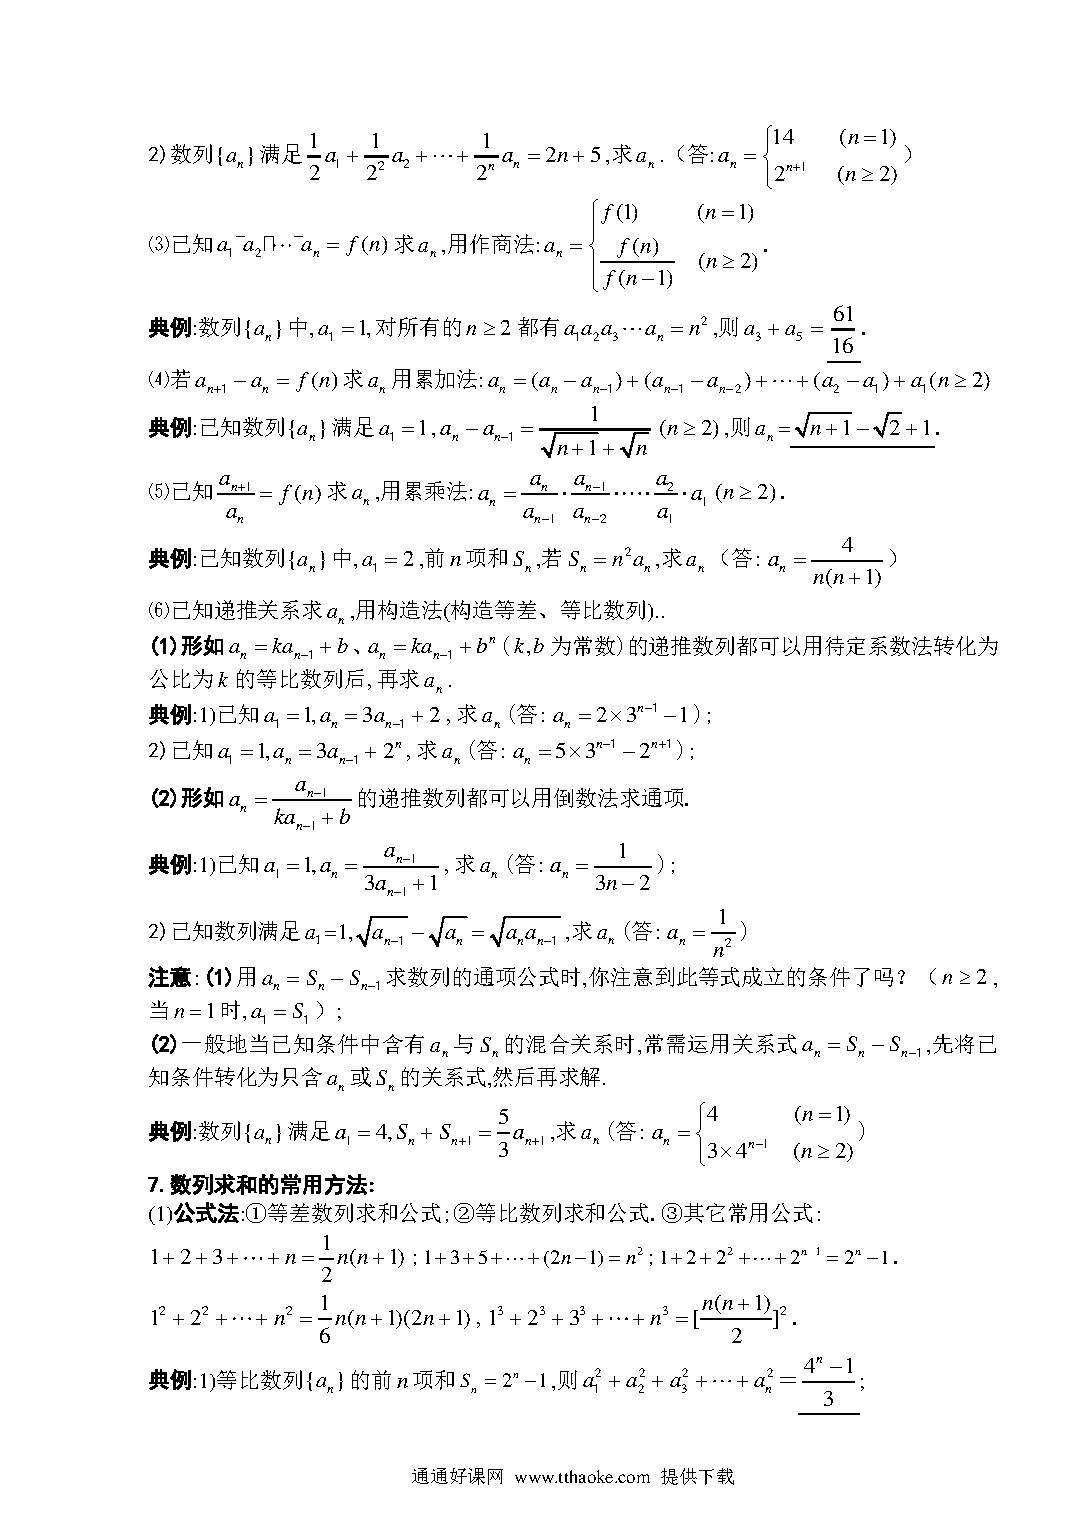 2)数列{a_n}满足 1/2 a_1 + 1/2^2 a_2 + ⋯ + 1/2^n a_n = 2n+5,求a_n.（答:a_n = {14 (n=1) 2^{n+1} (n≥2)）
⑶已知a_1 a_2 ⋯ a_n = f(n)求a_n,用作商法:a_n = {f(1) (n=1) f(n)/f(n−1) (n≥2).
典例:数列{a_n}中,a_1=1,对所有的n≥2都有a_1a_2a_3⋯a_n=n^2,则a_3+a_5=61/16.
⑷若a_{n+1}−a_n=f(n)求a_n用累加法:a_n=(a_n−a_{n−1})+(a_{n−1}−a_{n−2})+⋯+(a_2−a_1)+a_1(n≥2)
典例:已知数列{a_n}满足a_1=1,a_n−a_{n−1}=1/(√(n+1)+√n) (n≥2),则a_n=√(n+1)−√2+1.
⑸已知a_{n+1}/a_n=f(n)求a_n,用累乘法:a_n=a_n/a_{n−1}·a_{n−1}/a_{n−2}·⋯·a_2/a_1·a_1 (n≥2).
典例:已知数列{a_n}中,a_1=2,前n项和S_n,若S_n=n^2a_n,求a_n（答:a_n=4/(n(n+1))）
⑹已知递推关系求a_n,用构造法(构造等差、等比数列)..
(1)形如a_n=ka_{n−1}+b、a_n=ka_{n−1}+b^n(k,b为常数)的递推数列都可以用待定系数法转化为
公比为k的等比数列后,再求a_n.
典例:1)已知a_1=1,a_n=3a_{n−1}+2,求a_n(答:a_n=2×3^{n−1}−1);
2)已知a_1=1,a_n=3a_{n−1}+2^n,求a_n(答:a_n=5×3^{n−1}−2^{n+1});
(2)形如a_n=a_{n−1}/(ka_{n−1}+b)的递推数列都可以用倒数法求通项.
典例:1)已知a_1=1,a_n=a_{n−1}/(3a_{n−1}+1),求a_n(答:a_n=1/(3n−2));
2)已知数列满足a_1=1,√a_{n−1}−√a_n=√(a_na_{n−1}),求a_n(答:a_n=1/n^2)
注意:(1)用a_n=S_n−S_{n−1}求数列的通项公式时,你注意到此等式成立的条件了吗？（n≥2,
当n=1时,a_1=S_1）;
(2)一般地当已知条件中含有a_n与S_n的混合关系时,常需运用关系式a_n=S_n−S_{n−1},先将已
知条件转化为只含a_n或S_n的关系式,然后再求解.
典例:数列{a_n}满足a_1=4,S_n+S_{n+1}=5/3 a_{n+1},求a_n(答:a_n={4 (n=1) 3×4^{n−1} (n≥2))
7.数列求和的常用方法:
(1)公式法:①等差数列求和公式;②等比数列求和公式.③其它常用公式:
1+2+3+⋯+n=1/2 n(n+1);1+3+5+⋯+(2n−1)=n^2;1+2+2^2+⋯+2^{n−1}=2^n−1.
1^2+2^2+⋯+n^2=1/6 n(n+1)(2n+1),1^3+2^3+3^3+⋯+n^3=[n(n+1)/2]^2.
典例:1)等比数列{a_n}的前n项和S_n=2^n−1,则a_1^2+a_2^2+a_3^2+⋯+a_n^2=(4^n−1)/3;
通通好课网 www.tthaoke.com 提供下载